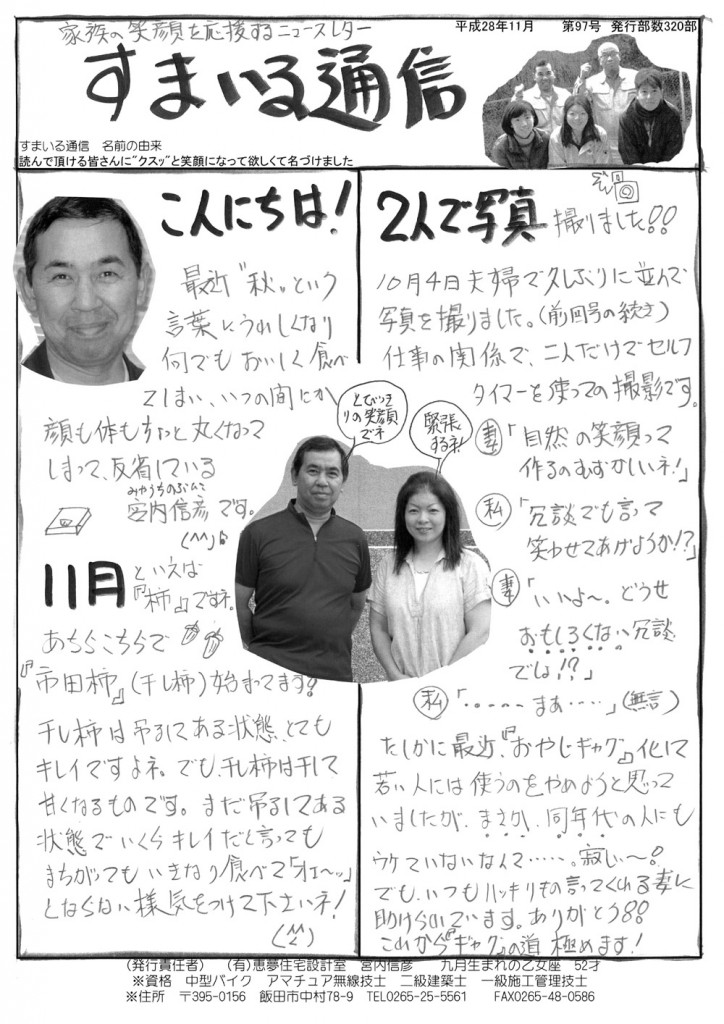 家族の笑顔を応援するニュースレター
平成28年11月　第97号　発行部数320部
すまいる通信
すまいる通信　名前の由来
読んで頂ける皆さんに"クスッ"と笑顔になって欲しくて名づけました
こんにちは!
最近"秋"という
言葉にうれしくなり
何でもおいしく食べ
てしまい、いつの間にか
顔も体もちょっと丸くなって
しまって、反省している
みやうちのぶひこ
宮内信彦です。
11月
といえば
『柿』ですネ。
あちらこちらで
『市田柿』(干し柿)始まってます?
干し柿は吊るしてある状態、とても
キレイですよネ。でも、干し柿は干して
甘くなるものです。まだ吊るしてある
状態でいくらキレイだと言っても
まちがってもいきなり食べて「オエ〜ッ」
とならない様気をつけて下さいネ!
2人で写真
撮りました!!
10月4日夫婦で久しぶりに並んで
写真を撮りました。(前回号の続き)
仕事の関係で、二人だけでセルフ
タイマーを使っての撮影です。
とびっき
りの笑顔
でネ
緊張
するネ!
妻「自然の笑顔って
作るのむずかしいネ!」
私「冗談でも言って
笑わせてあげようか!?」
妻「いいよ〜。どうせ
おもしろくない冗談
でしょ!?」
私「・・・・・まあ・・・・」(無言)
たしかに最近、『おやじギャグ』化して
若い人には使うのをやめようと思って
いましたが、まさか、同年代の人にも
ウケていないなんて・・・・・。寂しい〜!
でも、いつもハッキリもの言ってくれる妻に
助けられています。ありがとう!!
これから『ギャグ』の道 極めます!
(発行責任者)　(有)恵夢住宅設計室　宮内信彦　九月生まれの乙女座　52才
※資格　中型バイク　アマチュア無線技士　二級建築士　一級施工管理技士
※住所　〒395-0156　飯田市中村78-9　TEL0265-25-5561　FAX0265-48-0586